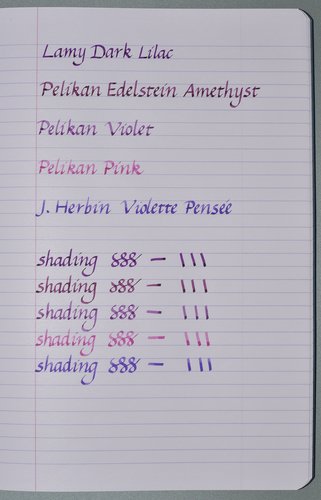 Lamy Dark Lilac
Pelikan Edelstein Amethyst
Pelikan Violet
Pelikan Pink
J. Herbin Violette Pensée
shading 888 — 111
shading 888 — 111
shading 888 — 111
shading 888 — 111
shading 888 — 111